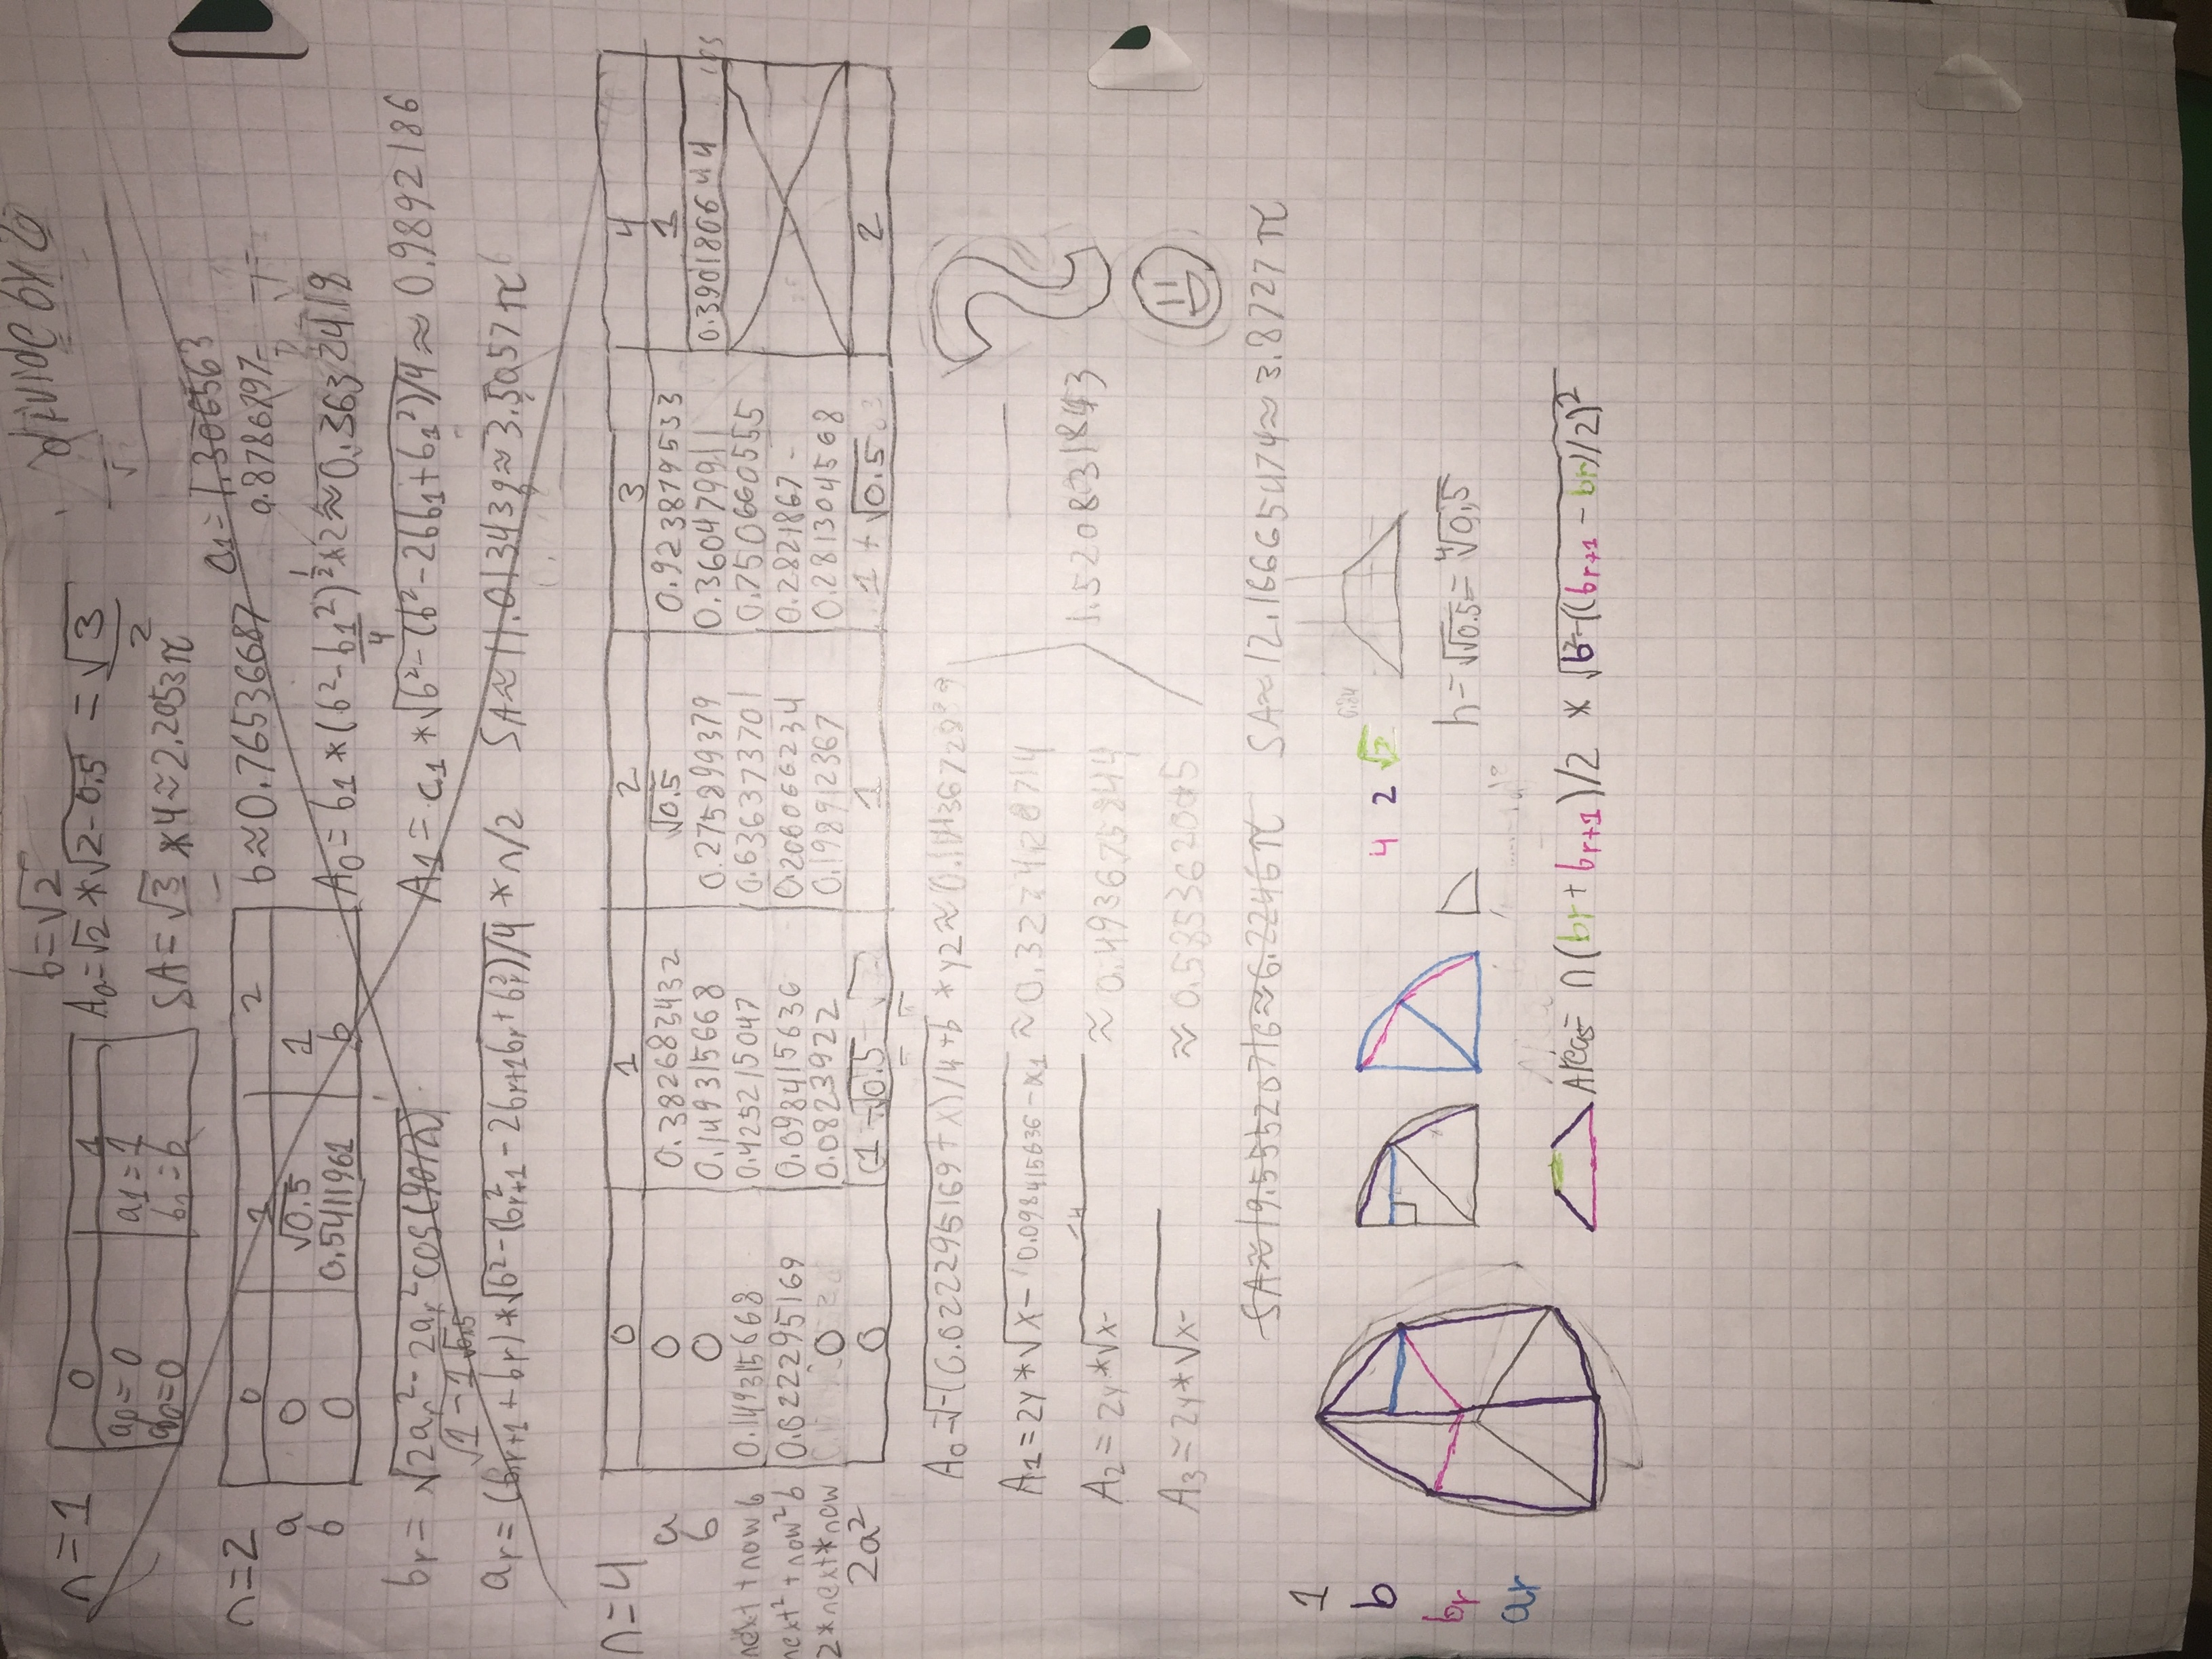 divide by 2
b=√2
n=1
0 1
a0=0 a1=1
b1=b
A0=√2*√2-0.5 = √3/2
SA=√3*4≈2.2053π
n=2
0 1 2
a 0 √0.5 1
b 0 0.5411961 b
b≈0.76536687
c1=1.306563
A0=b1*(b²-b1²/4)^½*2≈0.3632418
br=√2ar²-2ar²cos(90/n)
√1-1√0.5
A1=c1*√b²-(b²-2bb1+b1²)/4≈0.9892186
ar=(br+1+br)*√b²-(b²r+1-2br+1br+b²r)/4*n/2
SA≈11.013439≈3.5057π
n=4
0 1 2 3 4
a 0 0.382683432 √0.5 0.923879533 1
b 0 0.149315668 0.275899379 0.360479911 0.390180644
next+now b 0.149315668 0.425215047 0.636373701 0.750660555
next²+now² b 0.022295169 0.098415636 0.206066234 0.2821867
2*next*now 0 0.0823922 0.198912367 0.281304568
2a² 0 1-√0.5 1 1+√0.5 2
A0=√-(0.022295169+x)/4+b*y2≈
A1=2y*√x-0.098415636-x1/4≈
A2=2y*√x- ≈0.493675844
A3=2y*√x- ≈0.585362045
1.520831843
?
SA≈19.555520716≈6.2246π
SA≈12.16665474≈3.8727π
1
b
br
ar
4 2 √2
0.84
h=√√0.5=⁴√0.5
Area= n(br+br+1)/2 * √b²-((br+1-br)/2)²